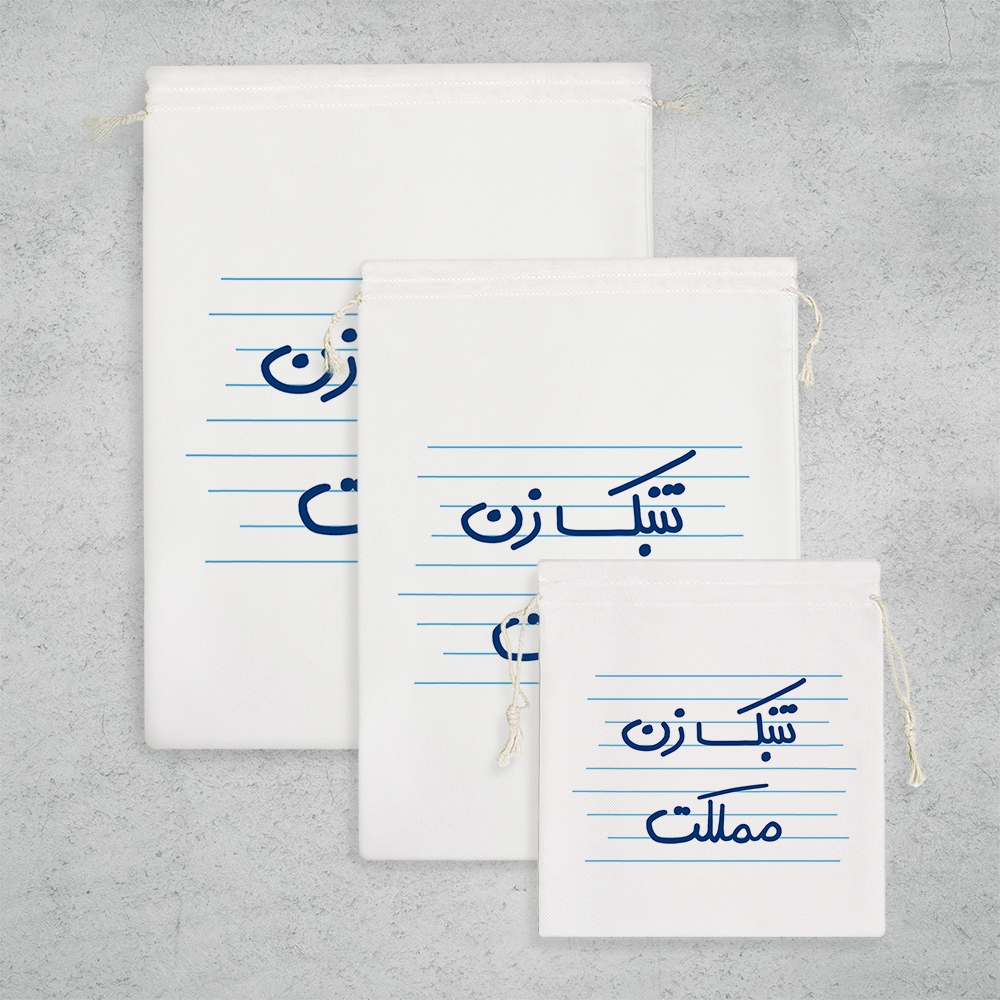 زن
تنبک زن
تنبک زن
مملکت